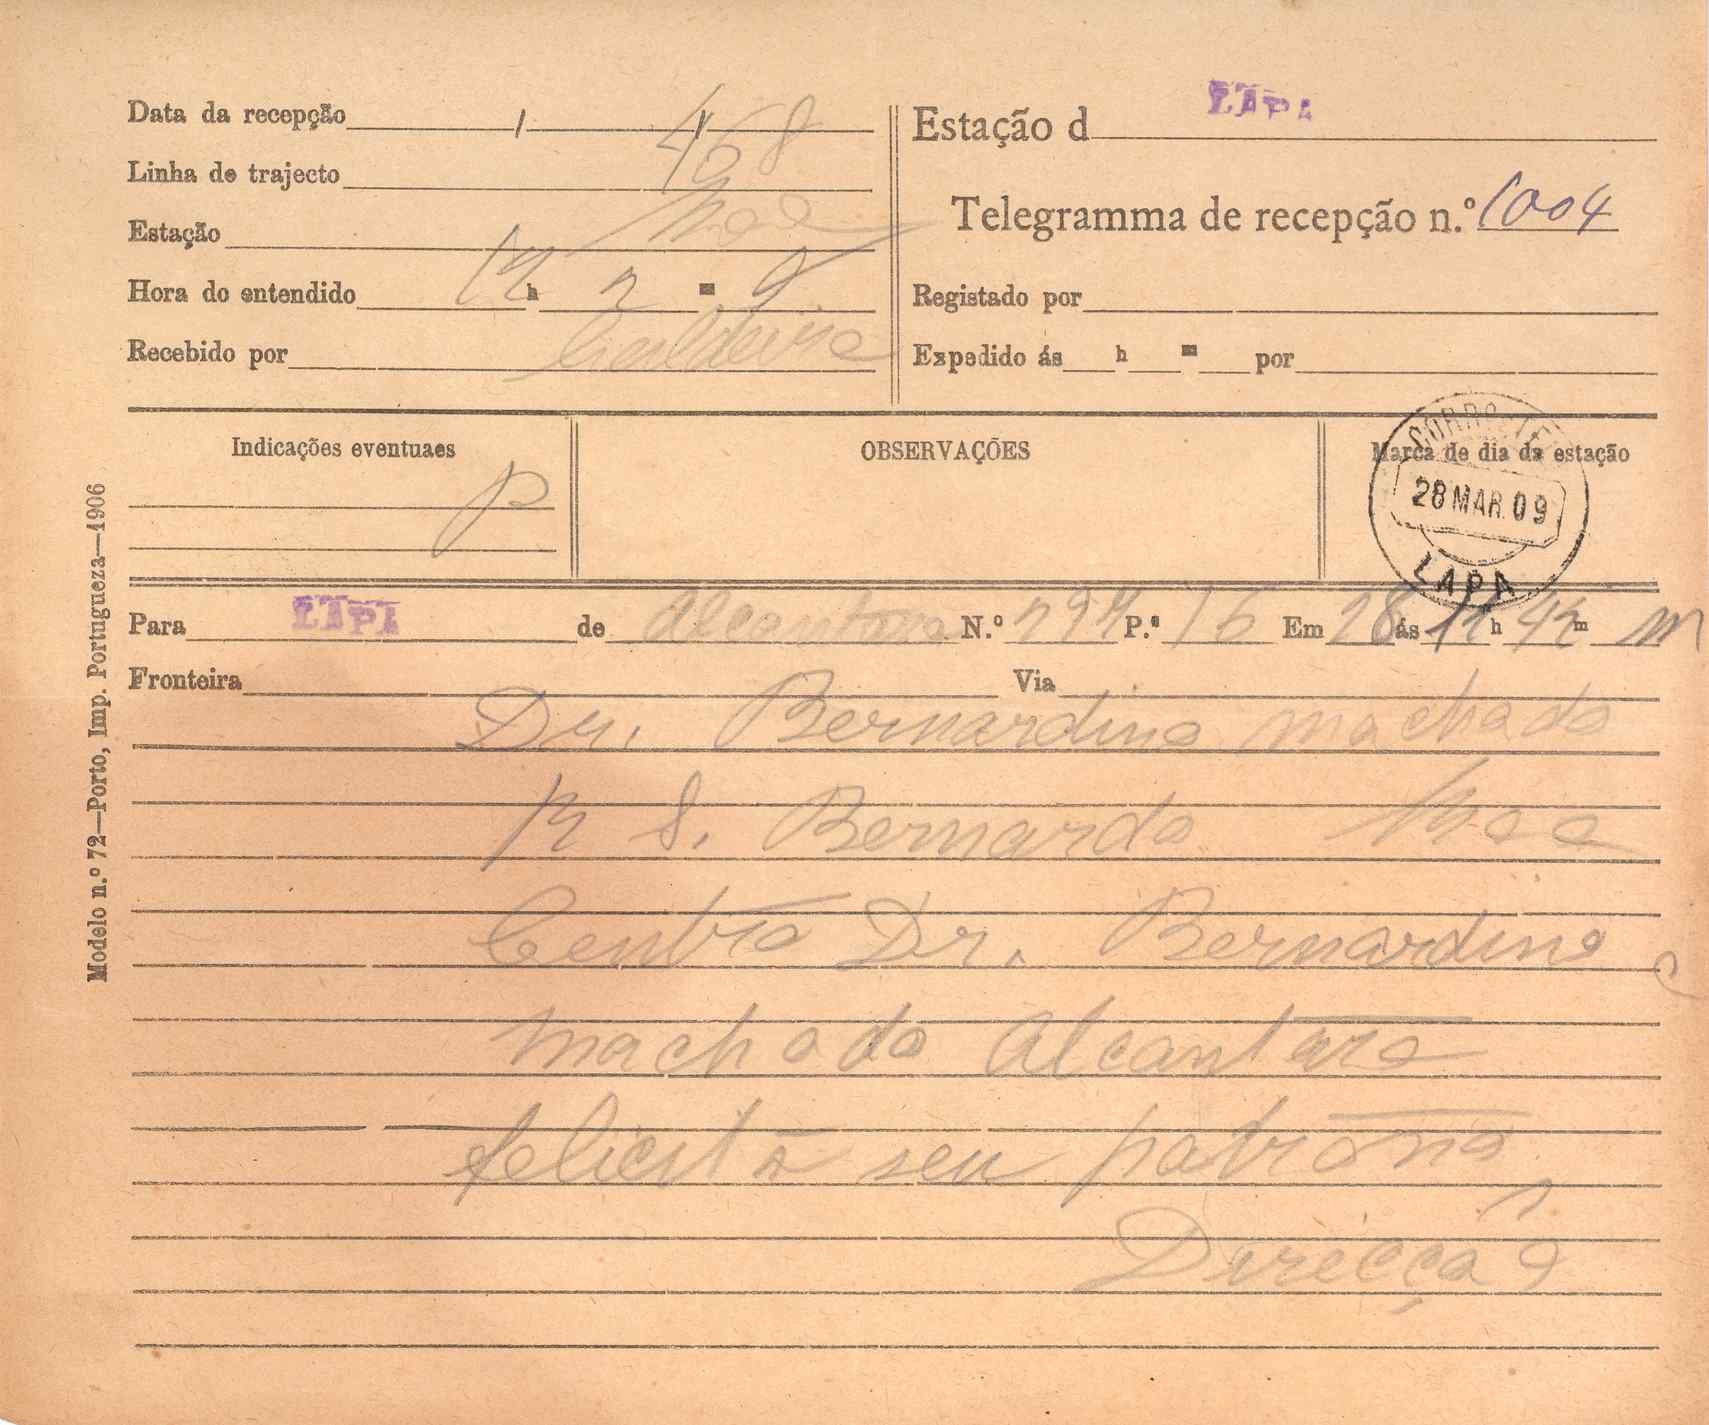 Data da recepção / /
468
Linha de trajecto
Estação
Hora do entendido 12 h 2 m
Recebido por
Estação d LAPA
Telegramma de recepção n.º 1004
Registado por
Expedido ás h m por
Indicações eventuaes
P
OBSERVAÇÕES
Marca de dia da estação
CORREIO
28 MAR. 09
LAPA
Para LAPA de Alcantara N.º 294 P.ª 16 Em 28 ás 11 h 42 m m
Fronteira Via
Dr. Bernardino machado
R S. Bernardo
Centro Dr. Bernardino
machado Alcantara
felicita seu patrono
Direcção
Modelo n.º 72—Porto, Imp. Portugueza—1906